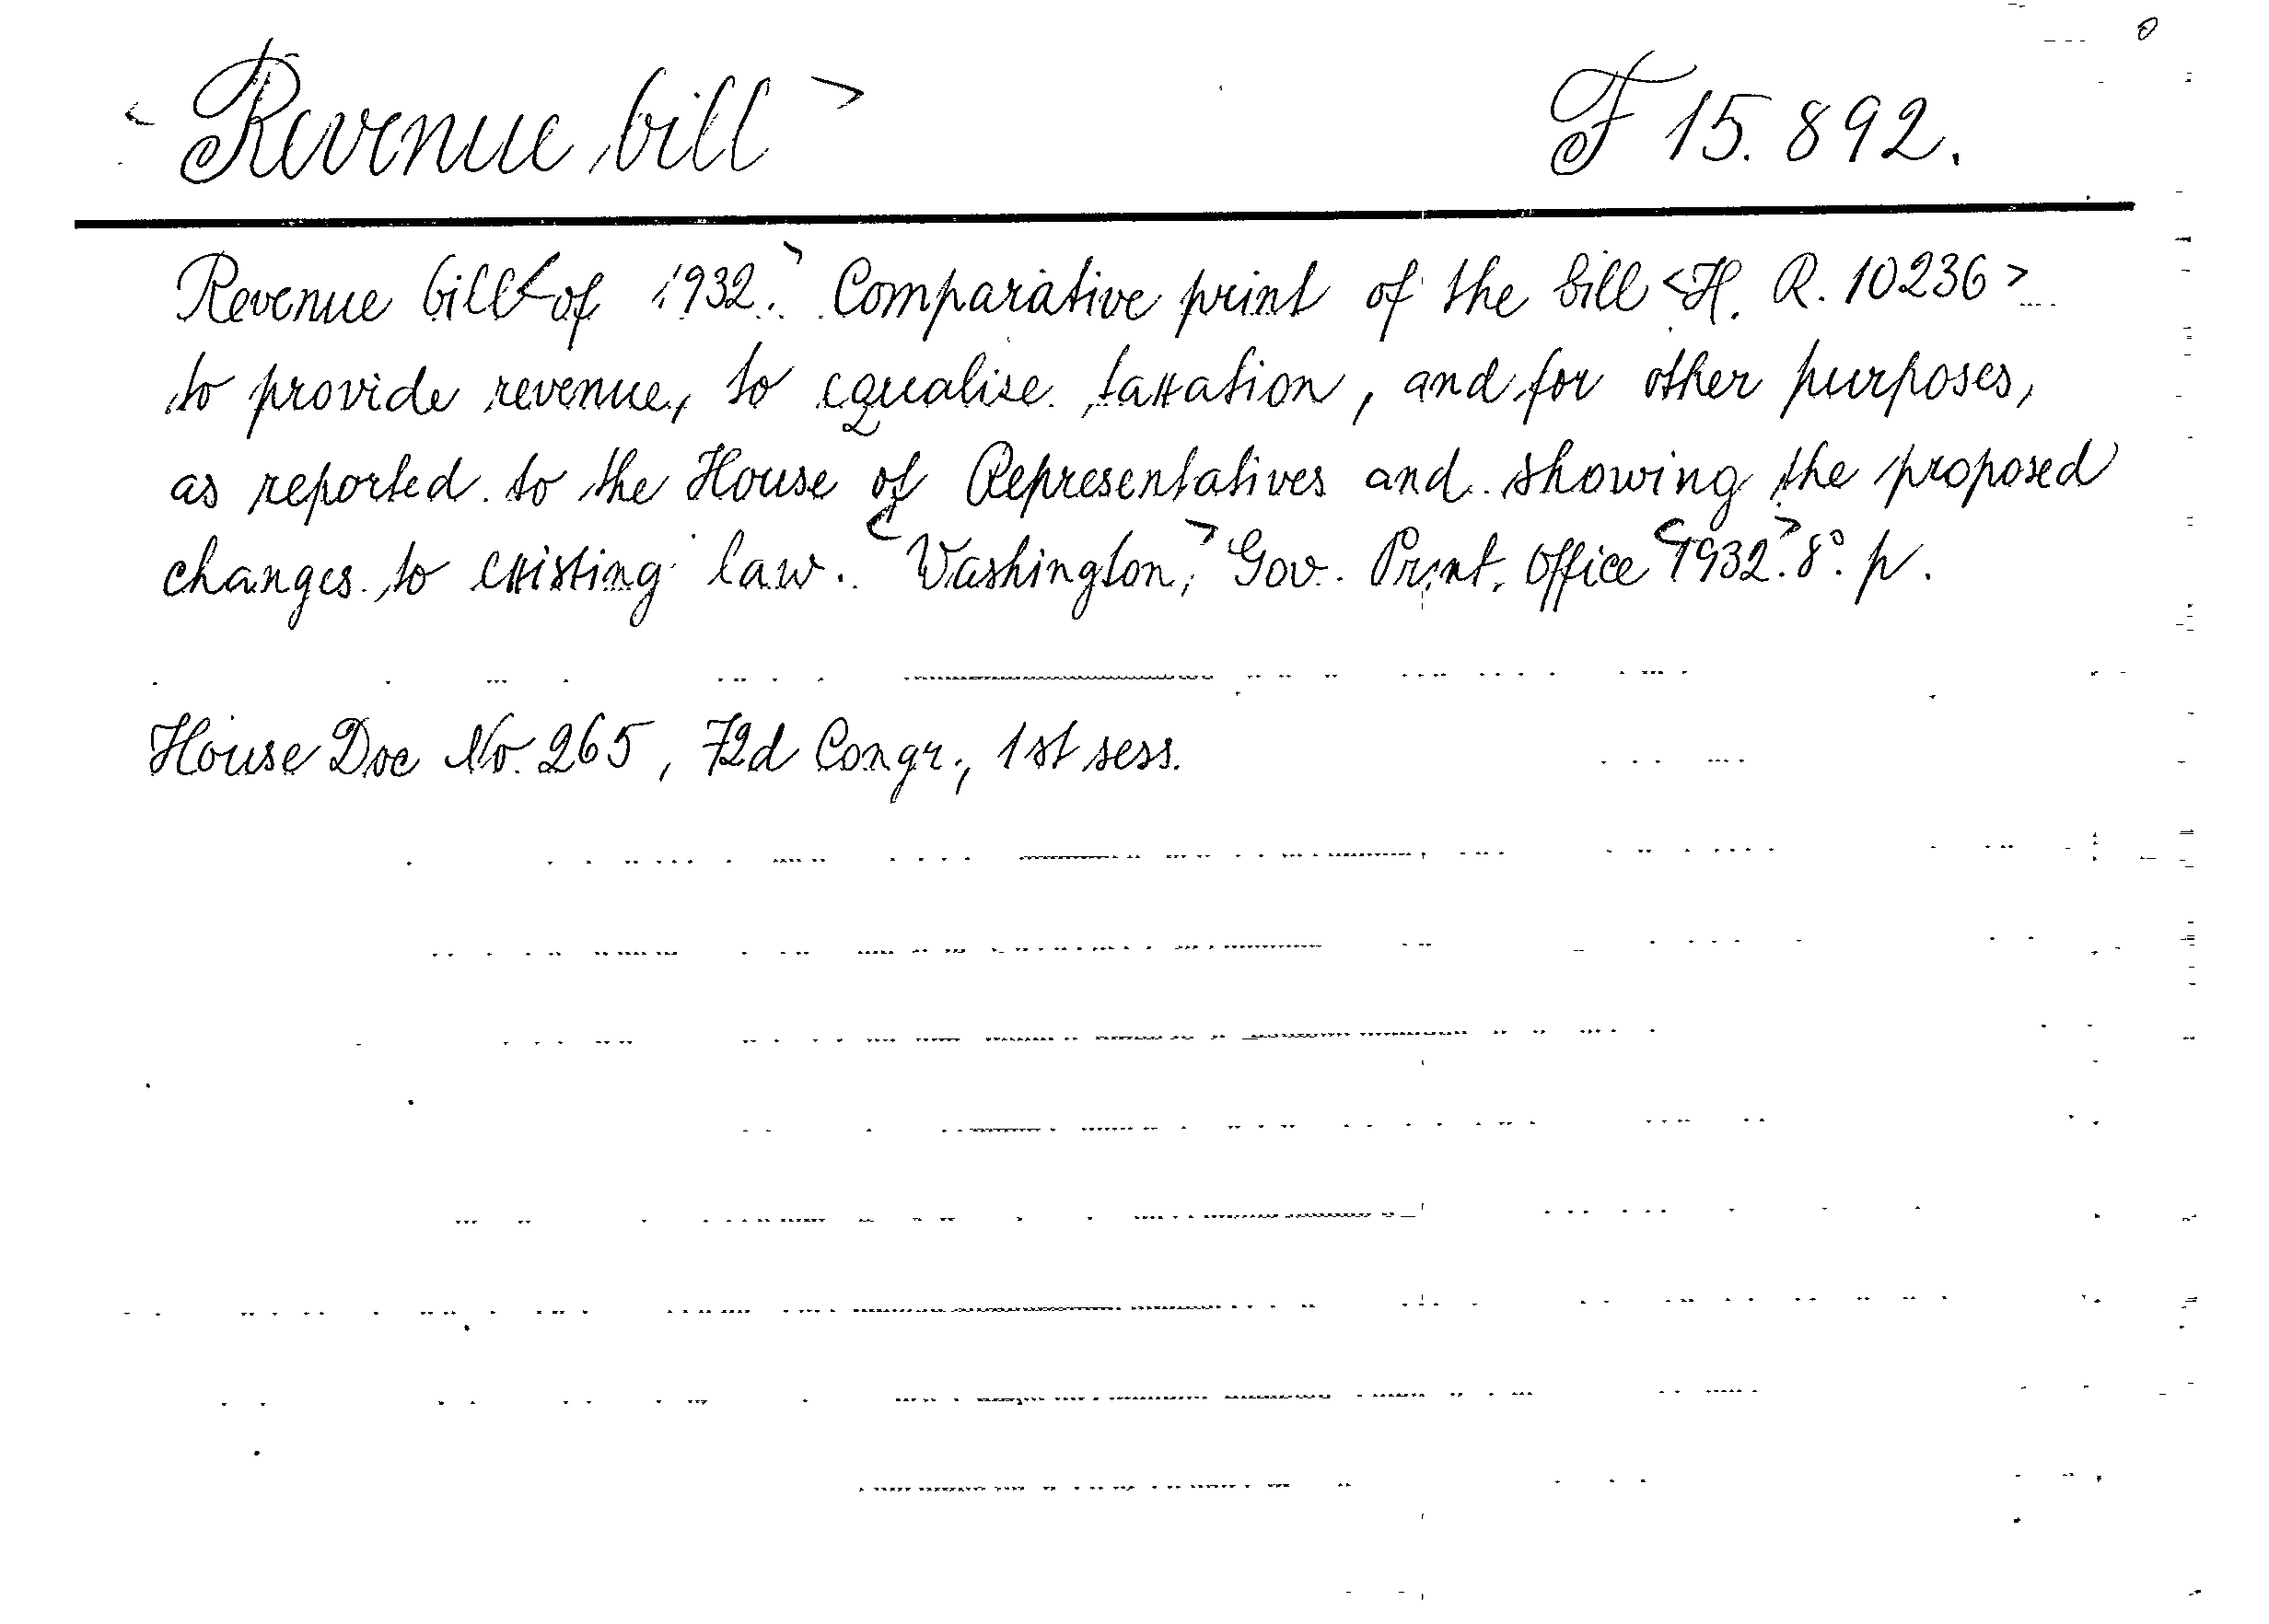 <Revenue bill> F 15.892.
Revenue bill <of 1932.> Comparative print of the bill <H. R. 10236>
to provide revenue, to equalise taxation, and for other purposes,
as reported to the House of Representatives and showing the proposed
changes to existing law. <Washington,> Gov. Print. Office <1932.> 8°. p.
House Doc No. 265, 72d Congr., 1st sess.